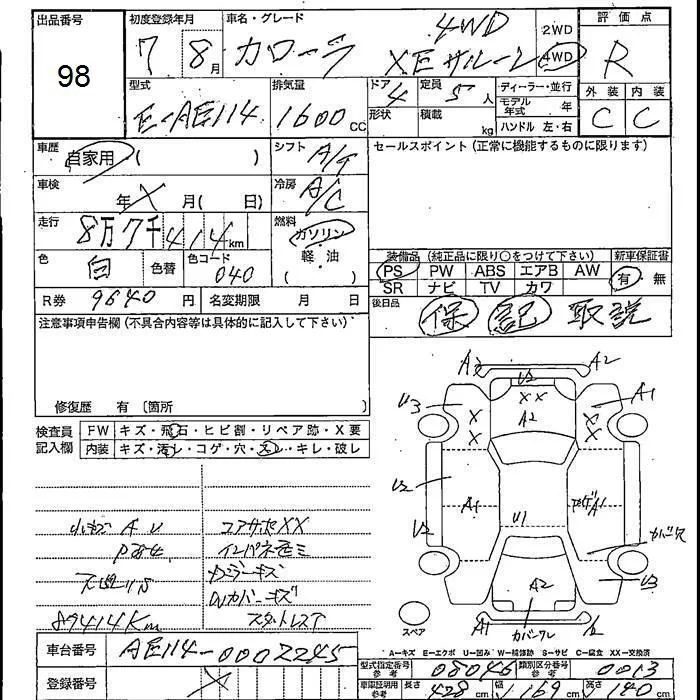 出品番号
98
初度登録年月
7 8月
車名・グレード
カローラ
4WD
XEサルーン
2WD
4WD
評価点
R
型式
E-AE114
排気量
1600cc
ドア
4
形状
定員
5人
積載
kg
ディーラー・並行
モデル年式 年
ハンドル 左・右
外装 内装
C C
車歴
自家用 ( )
シフト
A/T
セールスポイント (正常に機能するものに限ります)
車検
年 X 月( 日)
冷房
A/C
走行
8万7千414km
燃料
ガソリン
軽・油
( )
色
白
色替
色コード
040
装備品 (純正品に限り○をつけて下さい)
新車保証書
PS PW ABS エアB AW
SR ナビ TV カワ
有・無
R券 9640円
名変期限 月 日
後日品
保 記 取説
注意事項申告欄 (不具合内容等は具体的に記入して下さい)
修復歴 有 〔箇所 〕
検査員記入欄
FW キズ・飛石・ヒビ割・リペア跡・X要
内装 キズ・汚レ・コゲ・穴・スレ・キレ・破レ
コアサポXX
89414Km
A2
U2
A2
U3
XX
A1
A2
X
X
X
X
U2
A1
U1
A1
U2
U3
A2
A1
スペア
A-キズ E-エクボ U-凹み W-補修跡 S-サビ C-腐食 XX-交換済
車台番号
AE114-0002245
登録番号
X
型式指定番号
参考
08046
類別区分番号
参考
0013
車庫証明用
参考
長さ 428cm
幅 169cm
高さ 140cm